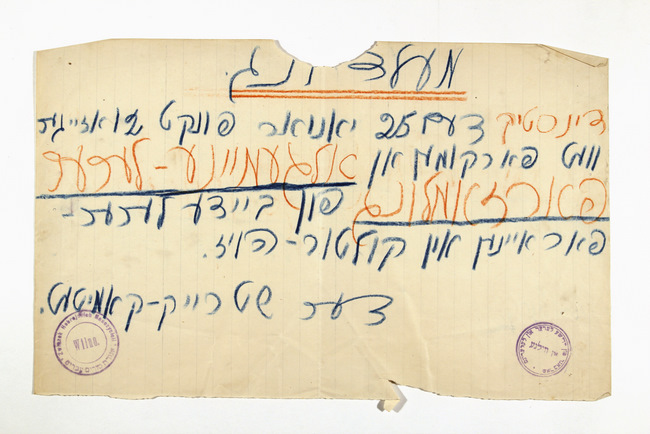 מעלדונג.
דינסטיק דעם 25 יאנואר פונקט 12 אזייגער
וועט פארקומען אן אלגעמיינע-לערער
פארזאמלונג פון ביידע לערער-
פאראיינען אין קולטור-הויז.
דער שטרייק-קאמיטעט.
Wilno.
אין ווילנע